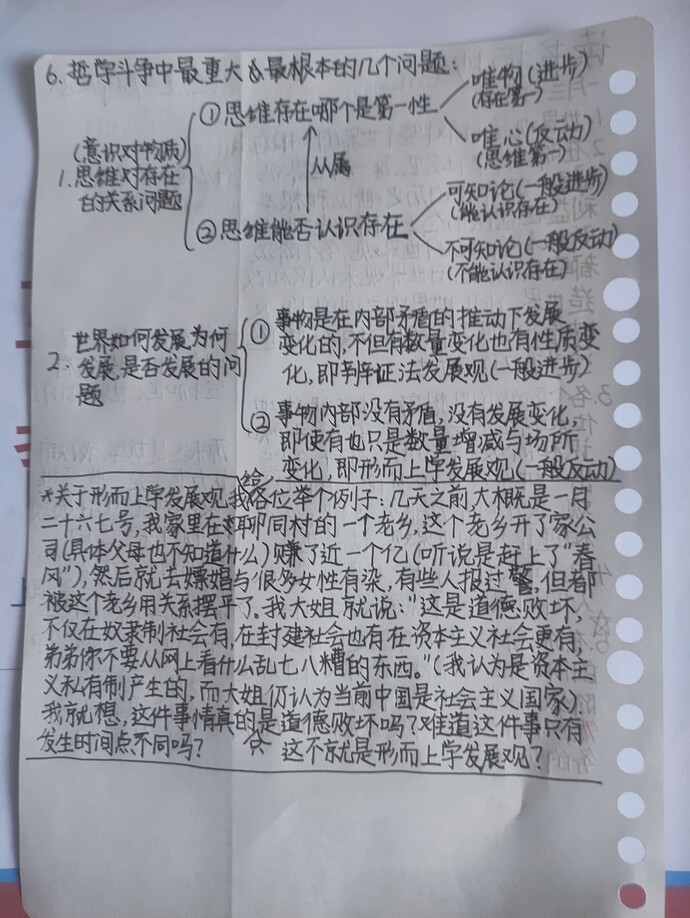 6.哲学斗争中最重大&最根本的几个问题:
①思维存在哪个是第一性
唯物(进步)
(存在第一)
唯心(反动)
(思维第一)
从属
(意识对物质)
1.思维对存在
的关系问题
②思维能否认识存在
可知论(一般进步)
(能认识存在)
不可知论(一般反动)
(不能认识存在)
世界如何发展,为何
2.发展,是否发展的问
题
①事物是在内部矛盾的推动下发展
变化的,不但有数量变化也有性质变
化,即辩证法发展观(一般进步)
②事物内部没有矛盾,没有发展变化,
即使有也只是数量增减与场所
变化,即形而上学发展观(一般反动)
*关于形而上学发展观,我给各位举个例子:几天之前,大概是一月
二十六七号,我家里在聊同村的一个老乡,这个老乡开了家公
司(具体父母也不知道什么)赚了近一个亿(听说是赶上了"春
风"),然后就去嫖娼与很多女性有染,有些人报过警,但都
被这个老乡用关系摆平了。我大姐就说:"这是道德败坏,
不仅在奴隶制社会有,在封建社会也有在资本主义社会更有,
弟弟你不要从网上看什么乱七八糟的东西。"(我认为是资本主
义私有制产生的,而大姐仍认为当前中国是社会主义国家).
我就想,这件事情真的是道德败坏吗?难道这件事只有
发生时间点不同吗? 这不就是形而上学发展观?